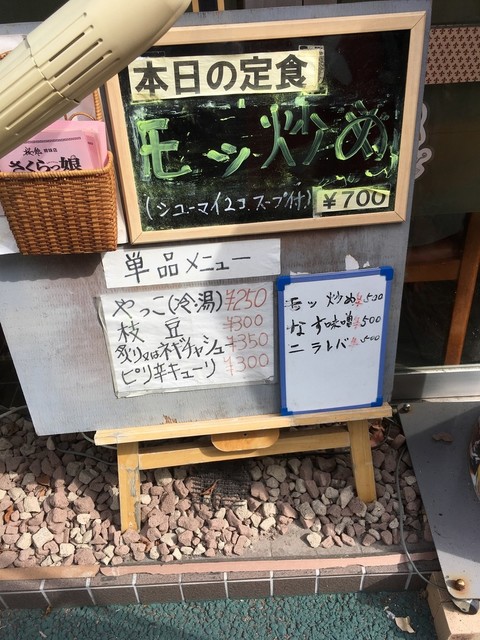 本日の定食
モツ炒め
(シューマイ2コ.スープ付)
¥700
さくらっ娘
単品メニュー
やっこ(冷湯)¥250
枝豆 ¥300
炙り又はネギチャシュー ¥350
ピリ辛キューリ ¥300
モツ炒め ¥500
なす味噌 ¥500
ニラレバ ¥500